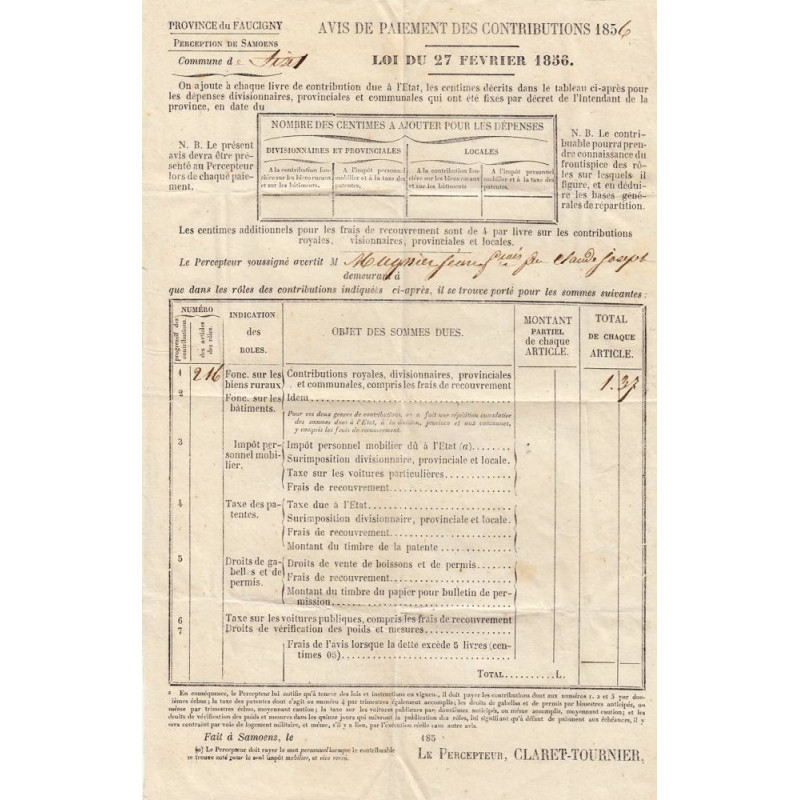 PROVINCE du FAUCIGNY
PERCEPTION DE SAMOENS
Commune de Sixt
AVIS DE PAIEMENT DES CONTRIBUTIONS 1856
LOI DU 27 FÉVRIER 1856.
On ajoute à chaque livre de contribution due à l'État, les centimes décrits dans le tableau ci-après pour
les dépenses divisionnaires, provinciales et communales qui ont été fixés par décret de l'Intendant de la
province, en date du
N. B. Le présent
avis devra être pré-
senté au Percepteur
lors de chaque paie-
ment.
NOMBRE DES CENTIMES A AJOUTER POUR LES DÉPENSES
DIVISIONNAIRES ET PROVINCIALES
LOCALES
A la contribution fon-
cière sur les biens ruraux
et sur les bâtiments.
A l'impôt personnel
mobilier et à la taxe des
patentes.
A la contribution foncière
sur les biens ruraux
et sur les bâtiments
A l'impôt personnel
mobilier et à la taxe des
patentes.
N. B. Le contri-
buable pourra pren-
dre connaissance du
frontispice des rô-
les sur lesquels il
figure, et en dédui-
re les bases géné-
rales de répartition.
Les centimes additionnels pour les frais de recouvrement sont de 4 par livre sur les contributions
royales, visionnaires, provinciales et locales.
Le Percepteur soussigné avertit M feu Claude Joseph
demeurant à
que dans les rôles des contributions indiquées ci-après, il se trouve porté pour les sommes suivantes :
NUMÉRO
progressif des
contributions.
des articles
des rôles.
INDICATION
des
ROLES.
OBJET DES SOMMES DUES.
MONTANT
PARTIEL
de chaque
ARTICLE.
TOTAL
DE CHAQUE
ARTICLE.
1 216 Fonc. sur les
biens ruraux
Contributions royales, divisionnaires, provinciales
et communales, compris les frais de recouvrement
1.37
2 Fonc. sur les
bâtiments.
Idem
Pour ces deux genres de contributions, on a fait une répétition cumulative
des sommes dues à l'État, à la division, province et aux communes,
y compris les frais de recouvrement.
3 Impôt per-
sonnel mobi-
lier.
Impôt personnel mobilier dû à l'État (a).
Surimposition divisionnaire, provinciale et locale.
Taxe sur les voitures particulières
Frais de recouvrement
4 Taxe des pa-
tentes.
Taxe due à l'État
Surimposition divisionnaire, provinciale et locale.
Frais de recouvrement
Montant du timbre de la patente
5 Droits de ga-
belles et de
permis.
Droits de vente de boissons et de permis
Frais de recouvrement
Montant du timbre du papier pour bulletin de per-
mission
6 Taxe sur les voitures publiques, compris les frais de recouvrement
7 Droits de vérification des poids et mesures
Frais de l'avis lorsque la dette excède 5 livres (cen-
times 05)
TOTAL L.
En conséquence, le Percepteur lui notifie qu'à teneur des lois et instructions en vigueur, il doit payer les contributions dont aux numéros 1, 2 et 3 par dou-
zièmes échus; la taxe des patentes dont s'agit au numéro 4 par trimestres également accomplis; les droits de gabelles et de permis par bimestres anticipés, ou
même par trimestres échus, moyennant caution; la taxe sur les voitures publiques par douzièmes anticipés, ou même accomplis, moyennant caution; et
les droits de vérification des poids et mesures dans les quinze jours qui suivront la publication des rôles, lui signifiant qu'à défaut de paiement aux échéances, il y
sera contraint par voie de logement militaire, et même, s'il y a lieu, par l'exécution réelle sans autre avis.
Fait à Samoens, le 185
(a) Le Percepteur doit rayer le mot personnel lorsque le contribuable
se trouve coté pour le seul impôt mobilier, et vice versâ.
LE PERCEPTEUR, CLARET-TOURNIER,